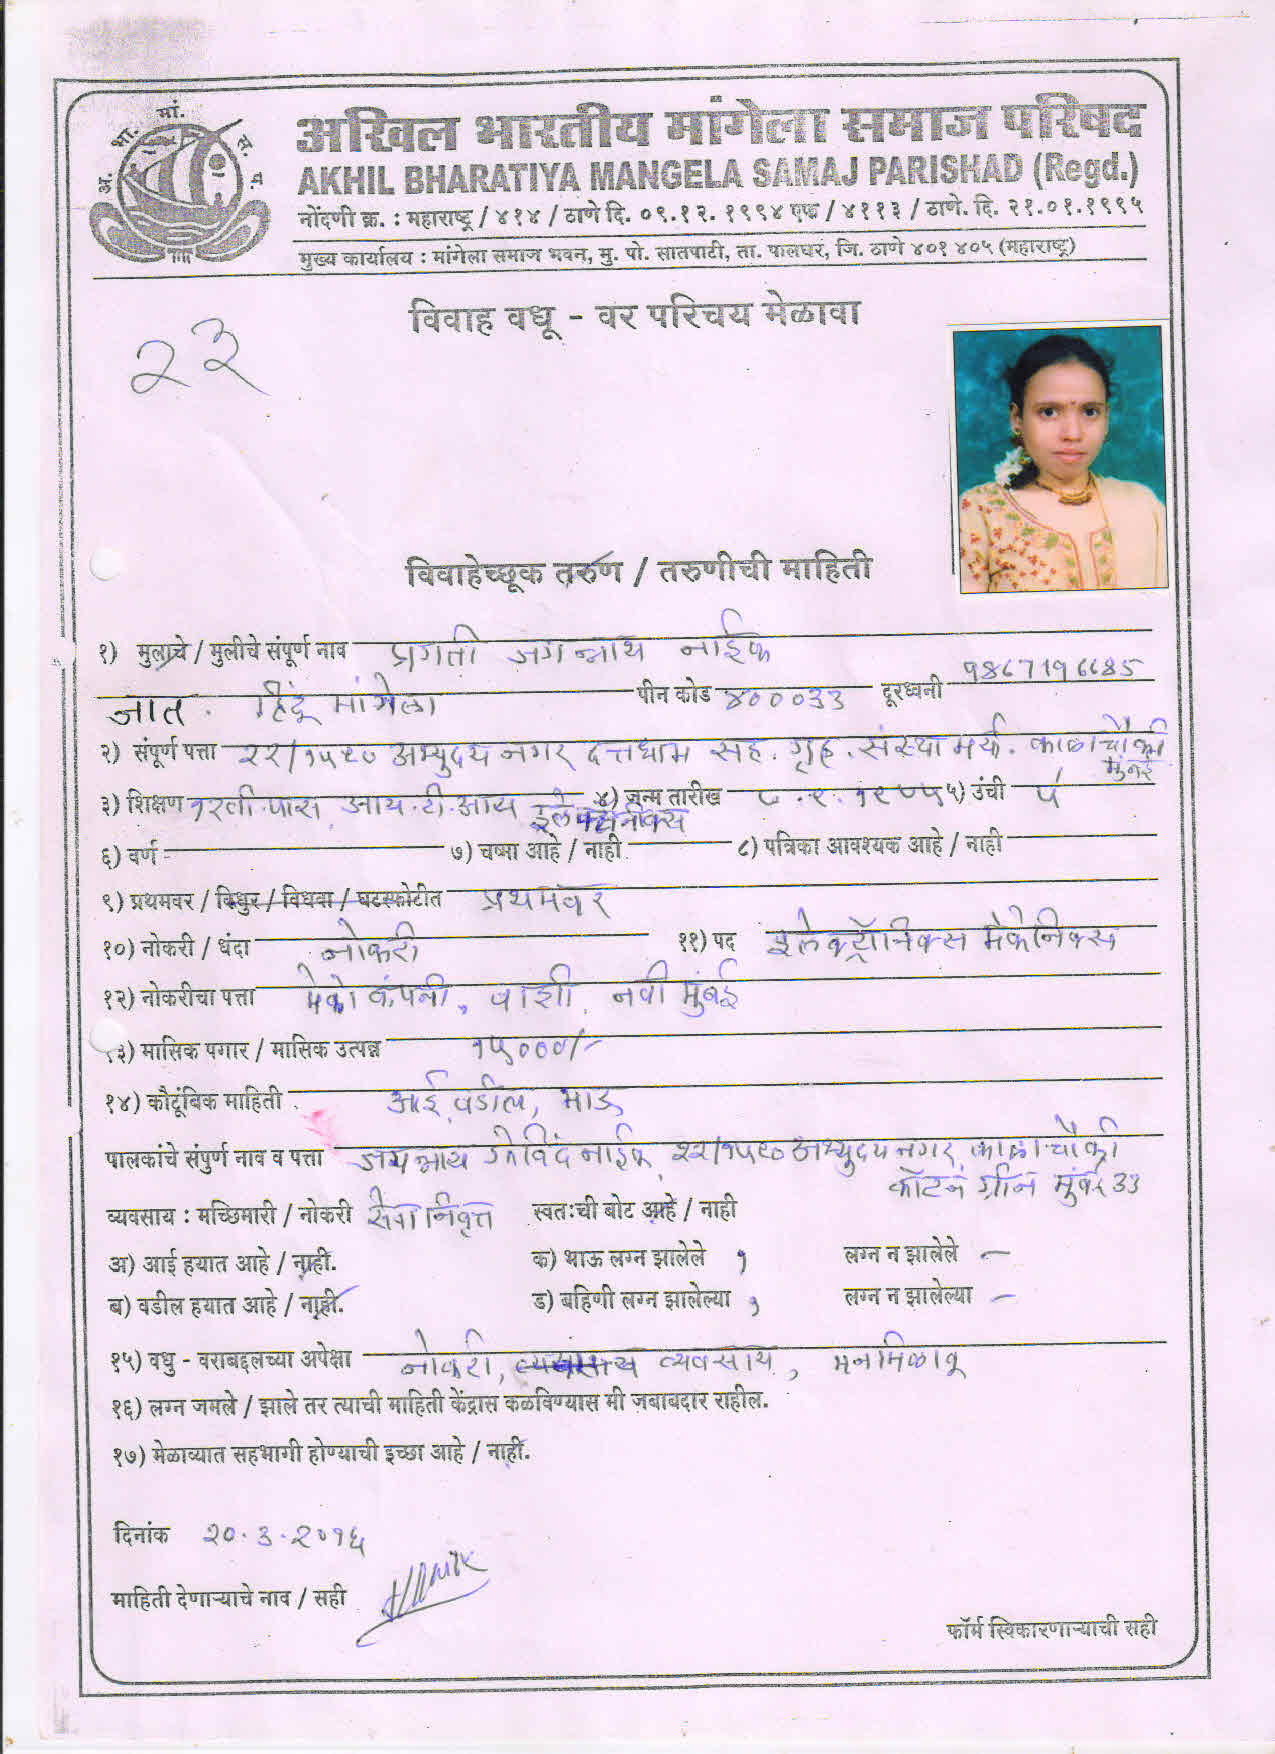 अ. भा. मां. स. प.
अखिल भारतीय मांगेला समाज परिषद
AKHIL BHARATIYA MANGELA SAMAJ PARISHAD (Regd.)
नोंदणी क्र. : महाराष्ट्र / ४१४ / ठाणे दि. ०९.१२.१९९४ एफ / ४११३ / ठाणे. दि. २१.०१.१९९५
मुख्य कार्यालय : मांगेला समाज भवन, मु. पो. सातपाटी, ता. पालघर, जि. ठाणे ४०१ ४०५ (महाराष्ट्र)
विवाह वधू - वर परिचय मेळावा
२३
विवाहेच्छूक तरुण / तरुणीची माहिती
१) मुलाचे / मुलीचे संपूर्ण नाव प्रगती जगन्नाथ नाईक
जात. हिंदू मांगेला पीन कोड ४०००३३ दूरध्वनी 9867196685
२) संपूर्ण पत्ता २२/१५९० अभ्युदय नगर दत्तधाम सह. गृह. संस्था मर्या. काळाचौकी
मुंबई
३) शिक्षण १२वी.पास आय.टी.आय ४) जन्म तारीख ५) उंची ५'
इलेक्ट्रॉनीक्स
६) वर्ण - ७) चष्मा आहे / नाही ८) पत्रिका आवश्यक आहे / नाही
९) प्रथमवर / विधुर / विधवा / घटस्फोटीत प्रथमवर
१०) नोकरी / धंदा नोकरी ११) पद इलेक्ट्रॉनिक्स मेकेनिक्स
१२) नोकरीचा पत्ता मेको कंपनी, वाशी, नवी मुंबई
१३) मासिक पगार / मासिक उत्पन्न १५०००/-
१४) कौटूंबिक माहिती आई, वडील, भाऊ
पालकांचे संपुर्ण नाव व पत्ता जगन्नाथ गोविंद नाईक, २२/१५९० अभ्युदय नगर, काळाचौकी
कॉटन ग्रीन मुंबई 33
व्यवसाय : मच्छिमारी / नोकरी सेवानिवृत्त स्वतःची बोट आहे / नाही
अ) आई हयात आहे / नाही. क) भाऊ लग्न झालेले १ लग्न न झालेले —
ब) वडील हयात आहे / नाही. ड) बहिणी लग्न झालेल्या १ लग्न न झालेल्या —
१५) वधु - वराबद्दलच्या अपेक्षा नोकरी, व्यवसाय, मनमिळावू
१६) लग्न जमले / झाले तर त्याची माहिती केंद्रास कळविण्यास मी जबाबदार राहील.
१७) मेळाव्यात सहभागी होण्याची इच्छा आहे / नाही.
दिनांक २०.३.२०१६
माहिती देणाऱ्याचे नाव / सही
फॉर्म स्विकारणाऱ्याची सही